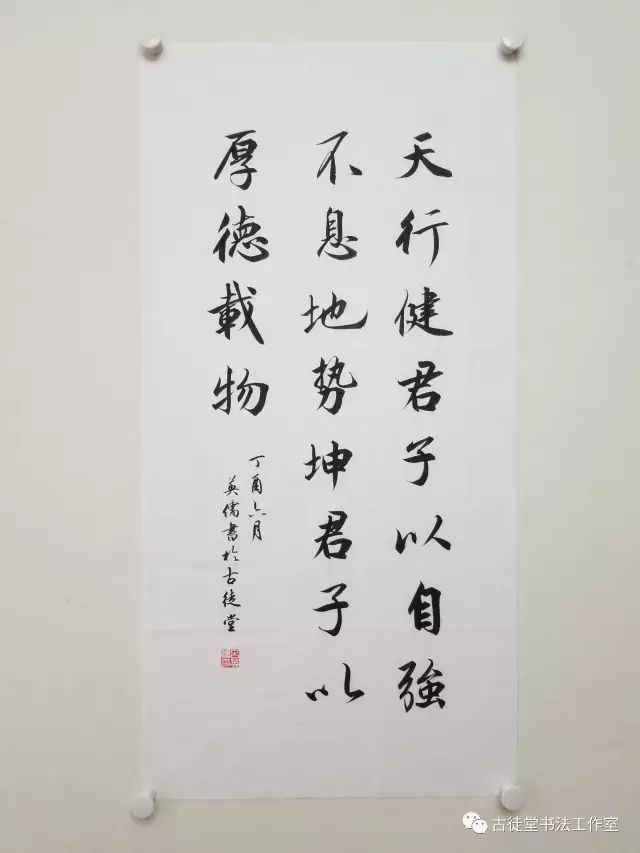 天行健君子以自強
不息地势坤君子以
厚德載物
丁酉六月
英儒書於古徒堂
古徒堂书法工作室